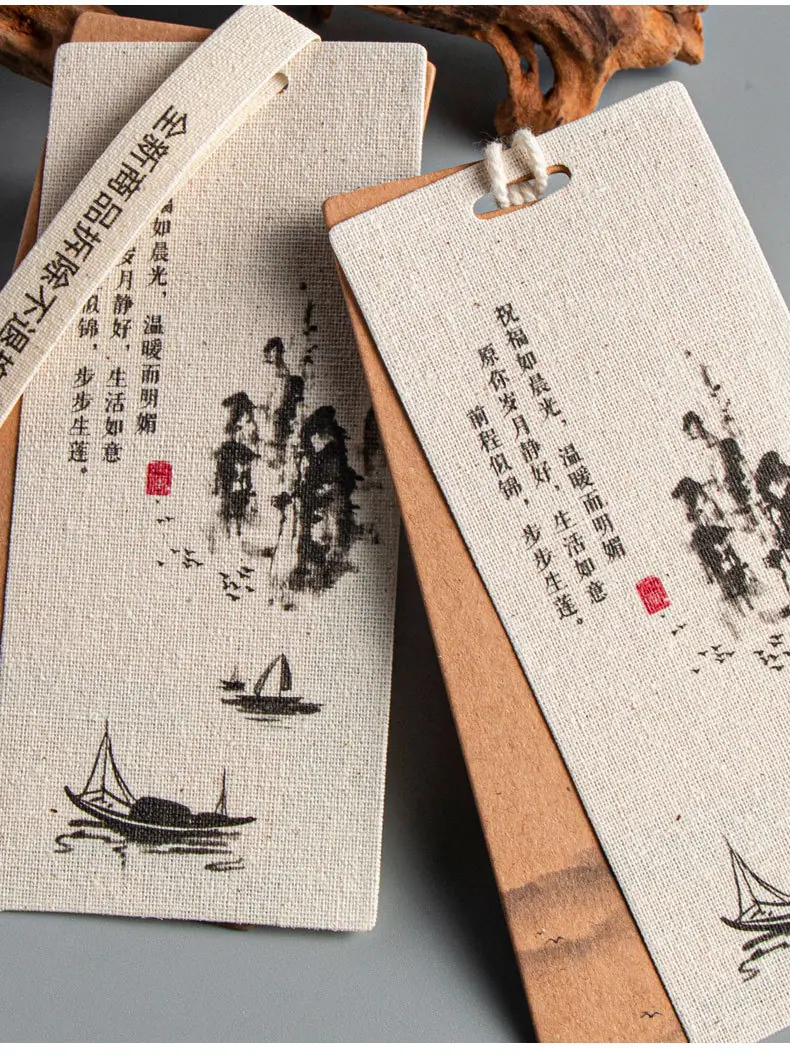 全新商品拆除不退
福如晨光，温暖而明媚
岁月静好，生活如意
似锦，步步生莲。
祝福如晨光，温暖而明媚
原你岁月静好，生活如意
前程似锦，步步生莲。